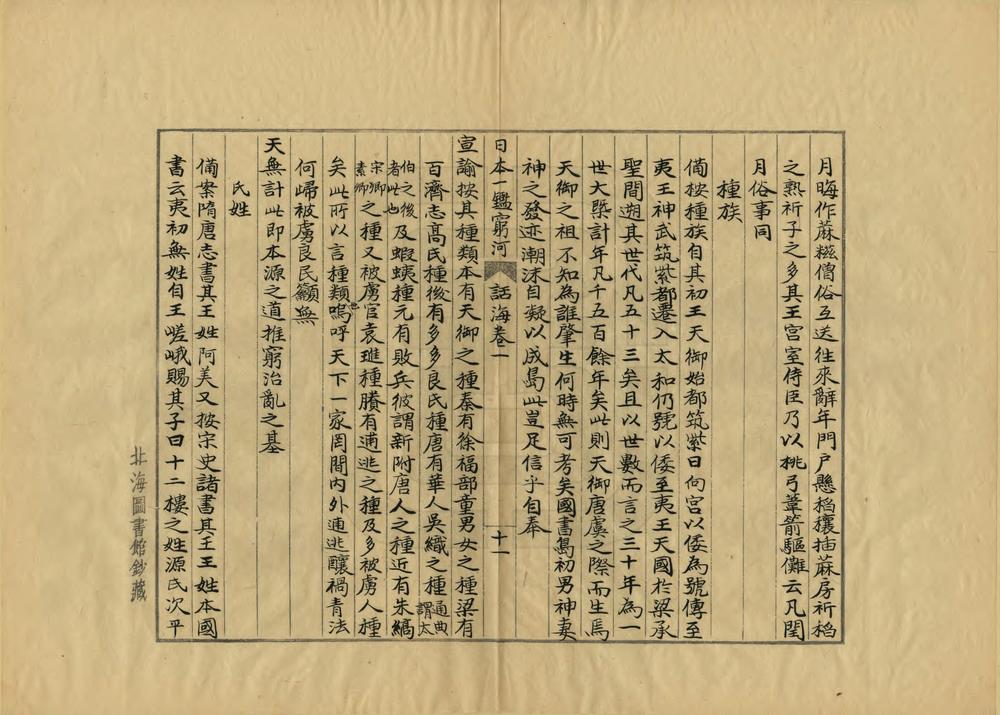 月晦作蔴糍僧俗互送徃來辭年門戸懸稻穰插蔴房祈稻
之熟祈子之多其王宮室侍臣乃以桃弓葦箭驅儺云凡閏
月俗事同
種族
備按種族自其初王天御始都筑紫日向宮以倭為號傳至
夷王神武筑紫都遷入太和仍號以倭至夷王天國於梁承
聖間遡其世代凡五十三矣且以世數而言之三十年為一
世大槩計年凡千五百餘年矣此則天御唐虞之際而生焉
天御之祖不知為誰肇生何時無可考矣國書島初男神妻
神之發迹潮沫自凝以成島此豈足信乎自奉
日本一鑑窮河 話海卷一 十一
宣諭按其種類本有天御之種秦有徐福部童男女之種梁有
百濟志髙氏種後有多多良氏種唐有華人吳織之種通曲謂太
伯之後者此也及蝦蛦種元有敗兵彼謂新附唐人之種近有朱縞
宋卿素卿之種又被虜官袁璡種賸有逋逃之種及多被虜人種
矣此所以言種類嗚呼天下一家罔間内外逋逃釀禍青法
何歸被虜良民籲無
天無計此即本源之道推窮治亂之基
氏姓
備案隋唐志書其王姓阿美又按宋史諸書其王王姓本國
書云夷初無姓自王嵯峨賜其子曰十二樓之姓源氏次平
北海圖書館鈔藏